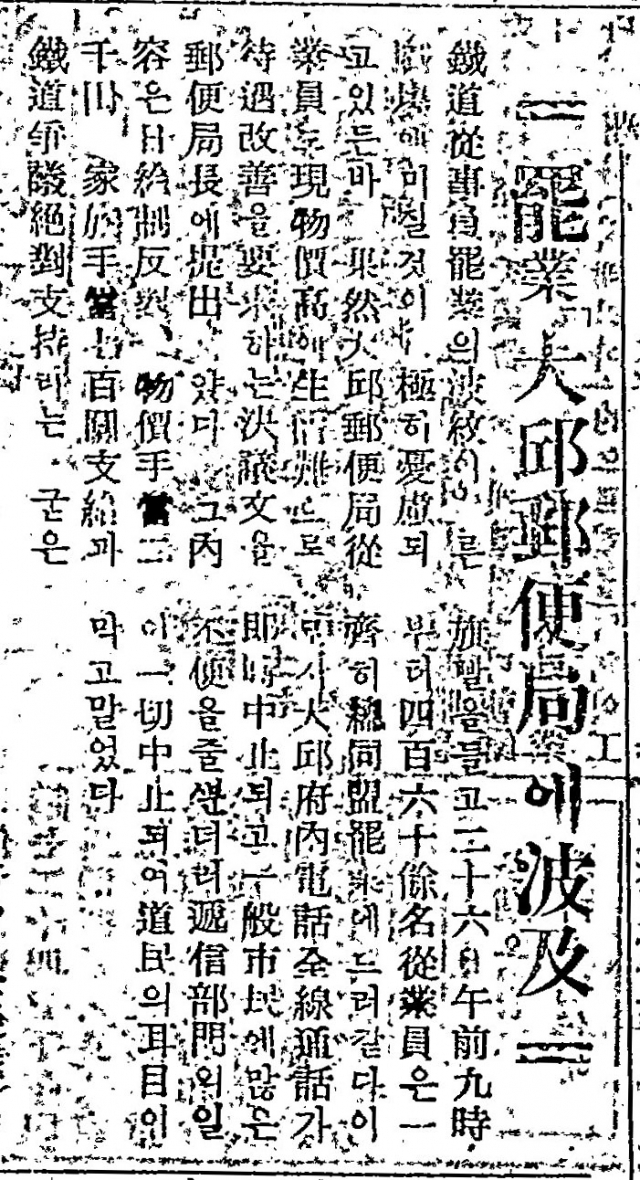 罷業 大邱郵便局에波及
鐵道從事員罷業의波紋이 른
에미칠것이 極히憂慮되
고있든바 果然大邱郵便局從
業員도現物價高에生活難으로
待遇改善을要求하는決議文을
郵便局長에提出 았다 그內
容은日給制反對、物價手當二
千 家族手當 百圓支給과
鐵道爭議絕對支持하는 굳은
旗빨을들고二十六日午前九時
부터四百六十餘名從業員은一
齊히總同盟罷業에드러갔다이
大邱府內電話全線通話가
即時中止되고一般市民에많은
不便을줄뿐더러遞信部門의일
이一切中止되여道民의耳目이
막고말었다